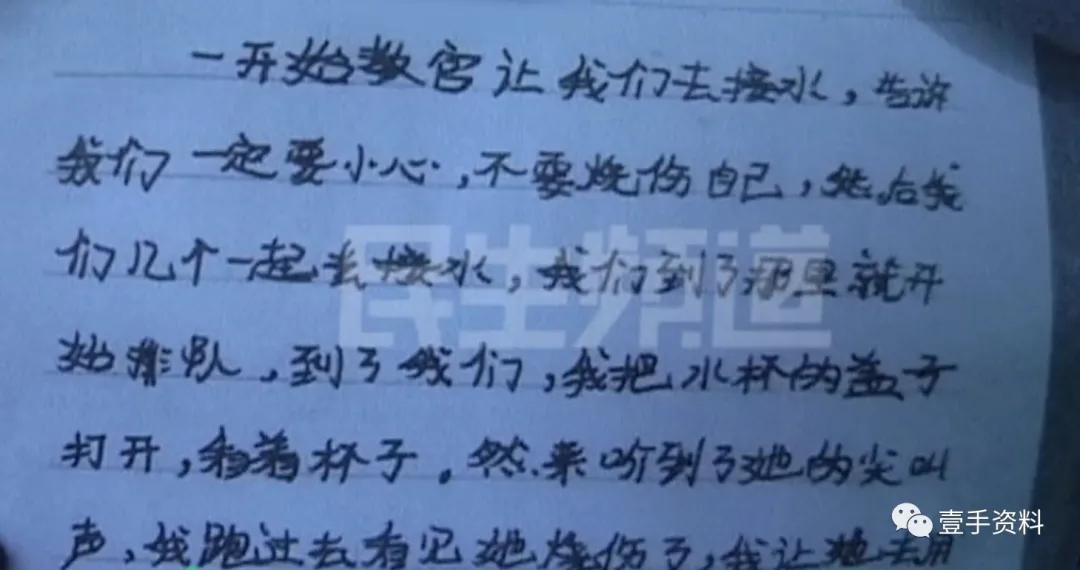 一开始教官让我们去接水，告诉
我们一定要小心，不要烧伤自己，然后我
们几个一起去接水，我们到了那里就开
始排队，到了我们，我把水杯的盖子
打开，着杯子。然来听到了她的尖叫
声，我跑过去看见她烧伤了，我让她去用
民生频道
壹手资料